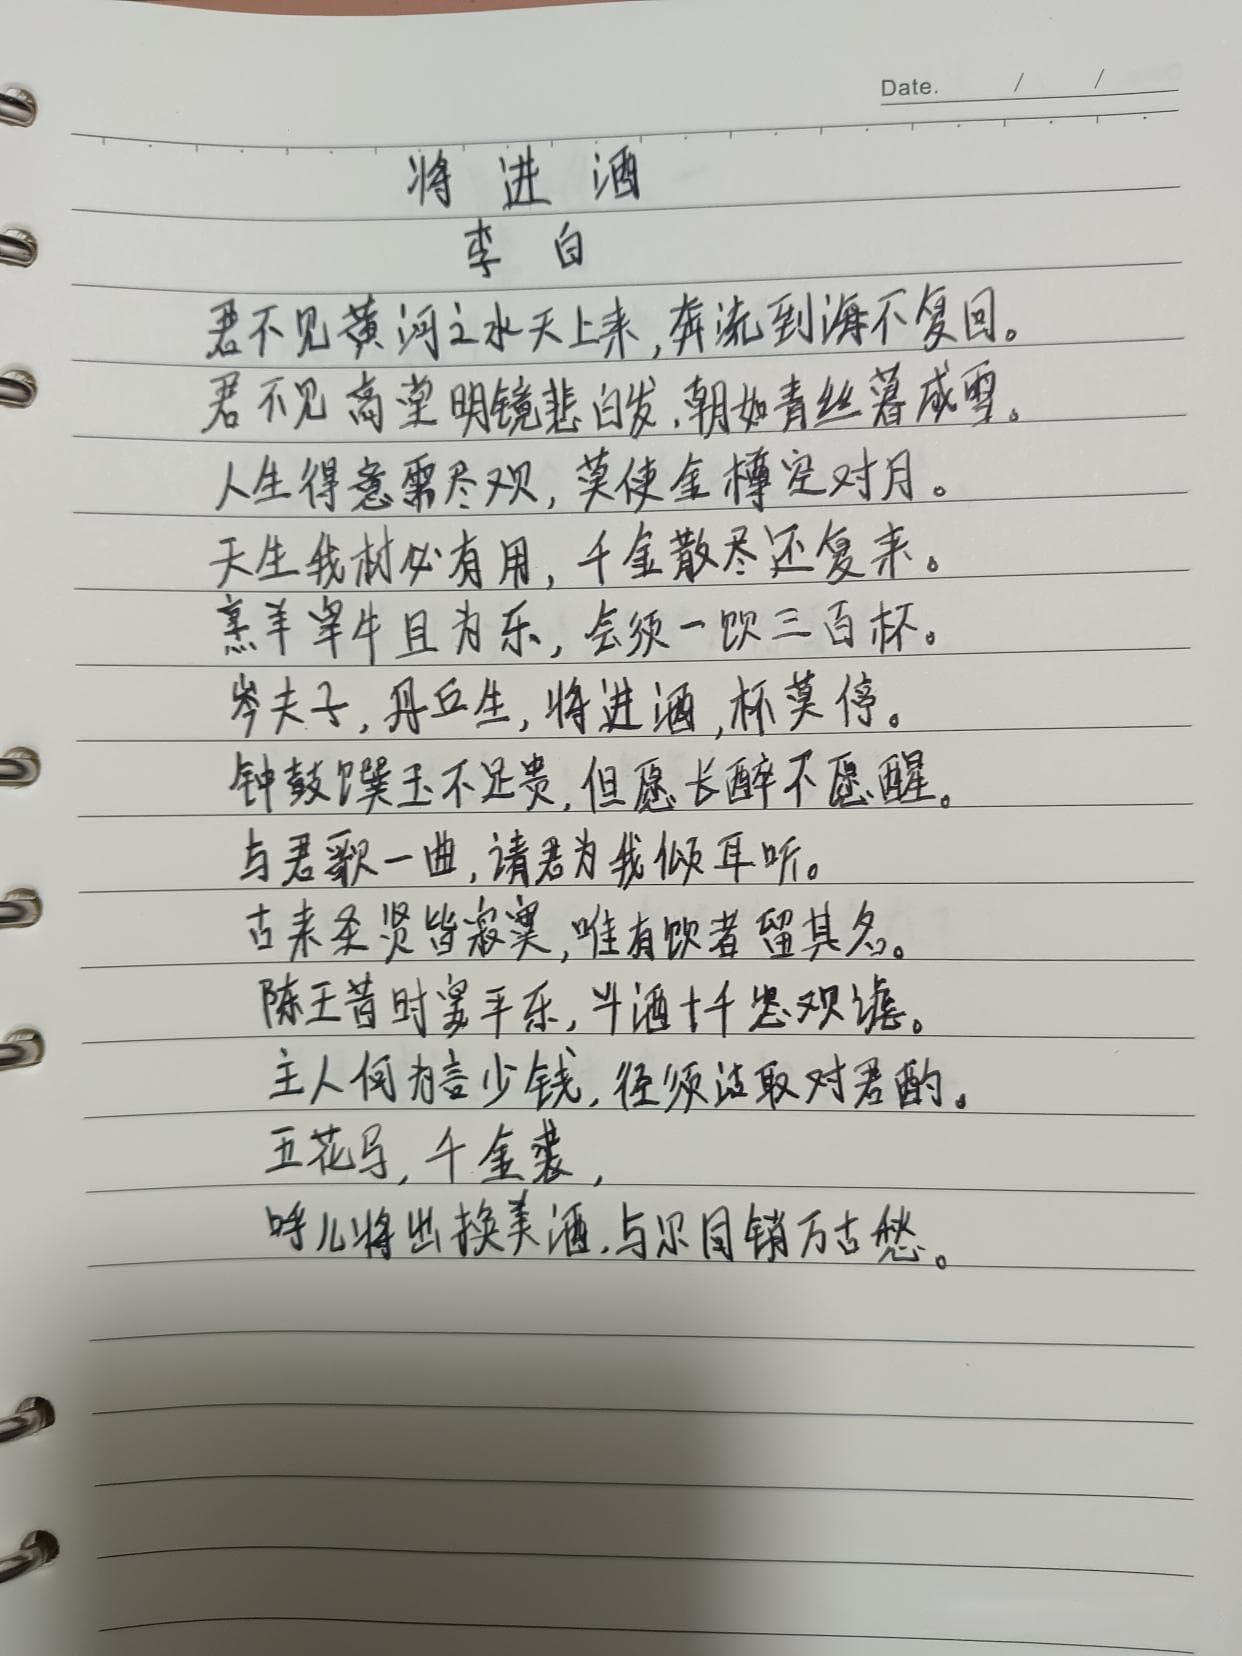 Date. / /
将进酒
李白
君不见黄河之水天上来,奔流到海不复回。
君不见高堂明镜悲白发,朝如青丝暮成雪。
人生得意需尽欢,莫使金樽空对月。
天生我材必有用,千金散尽还复来。
烹羊宰牛且为乐,会须一饮三百杯。
岑夫子,丹丘生,将进酒,杯莫停。
钟鼓馔玉不足贵,但愿长醉不愿醒。
与君歌一曲,请君为我倾耳听。
古来圣贤皆寂寞,唯有饮者留其名。
陈王昔时宴平乐,斗酒十千恣欢谑。
主人何为言少钱,径须沽取对君酌。
五花马,千金裘,
呼儿将出换美酒,与尔同销万古愁。